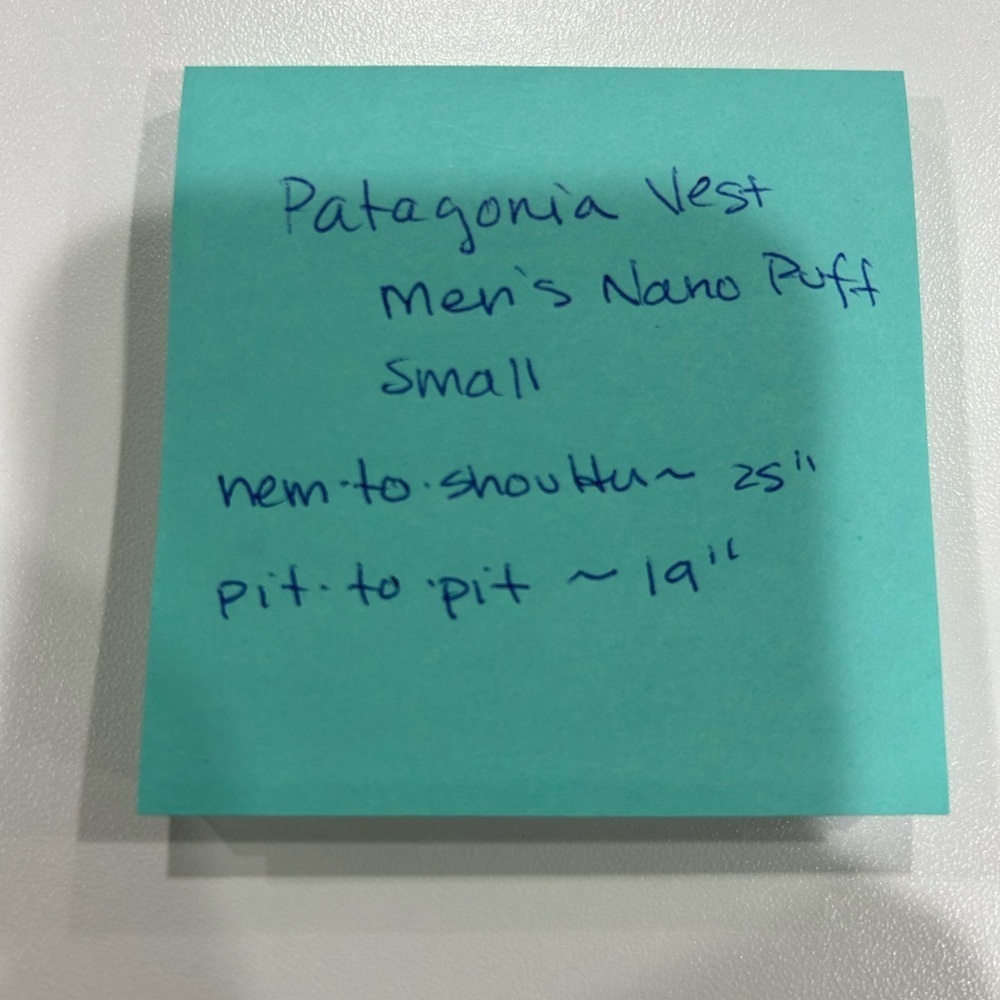 Patagonia Vest
Men's Nano Puff
Small
hem-to-shoulder ~ 25"
pit-to-pit ~ 19"